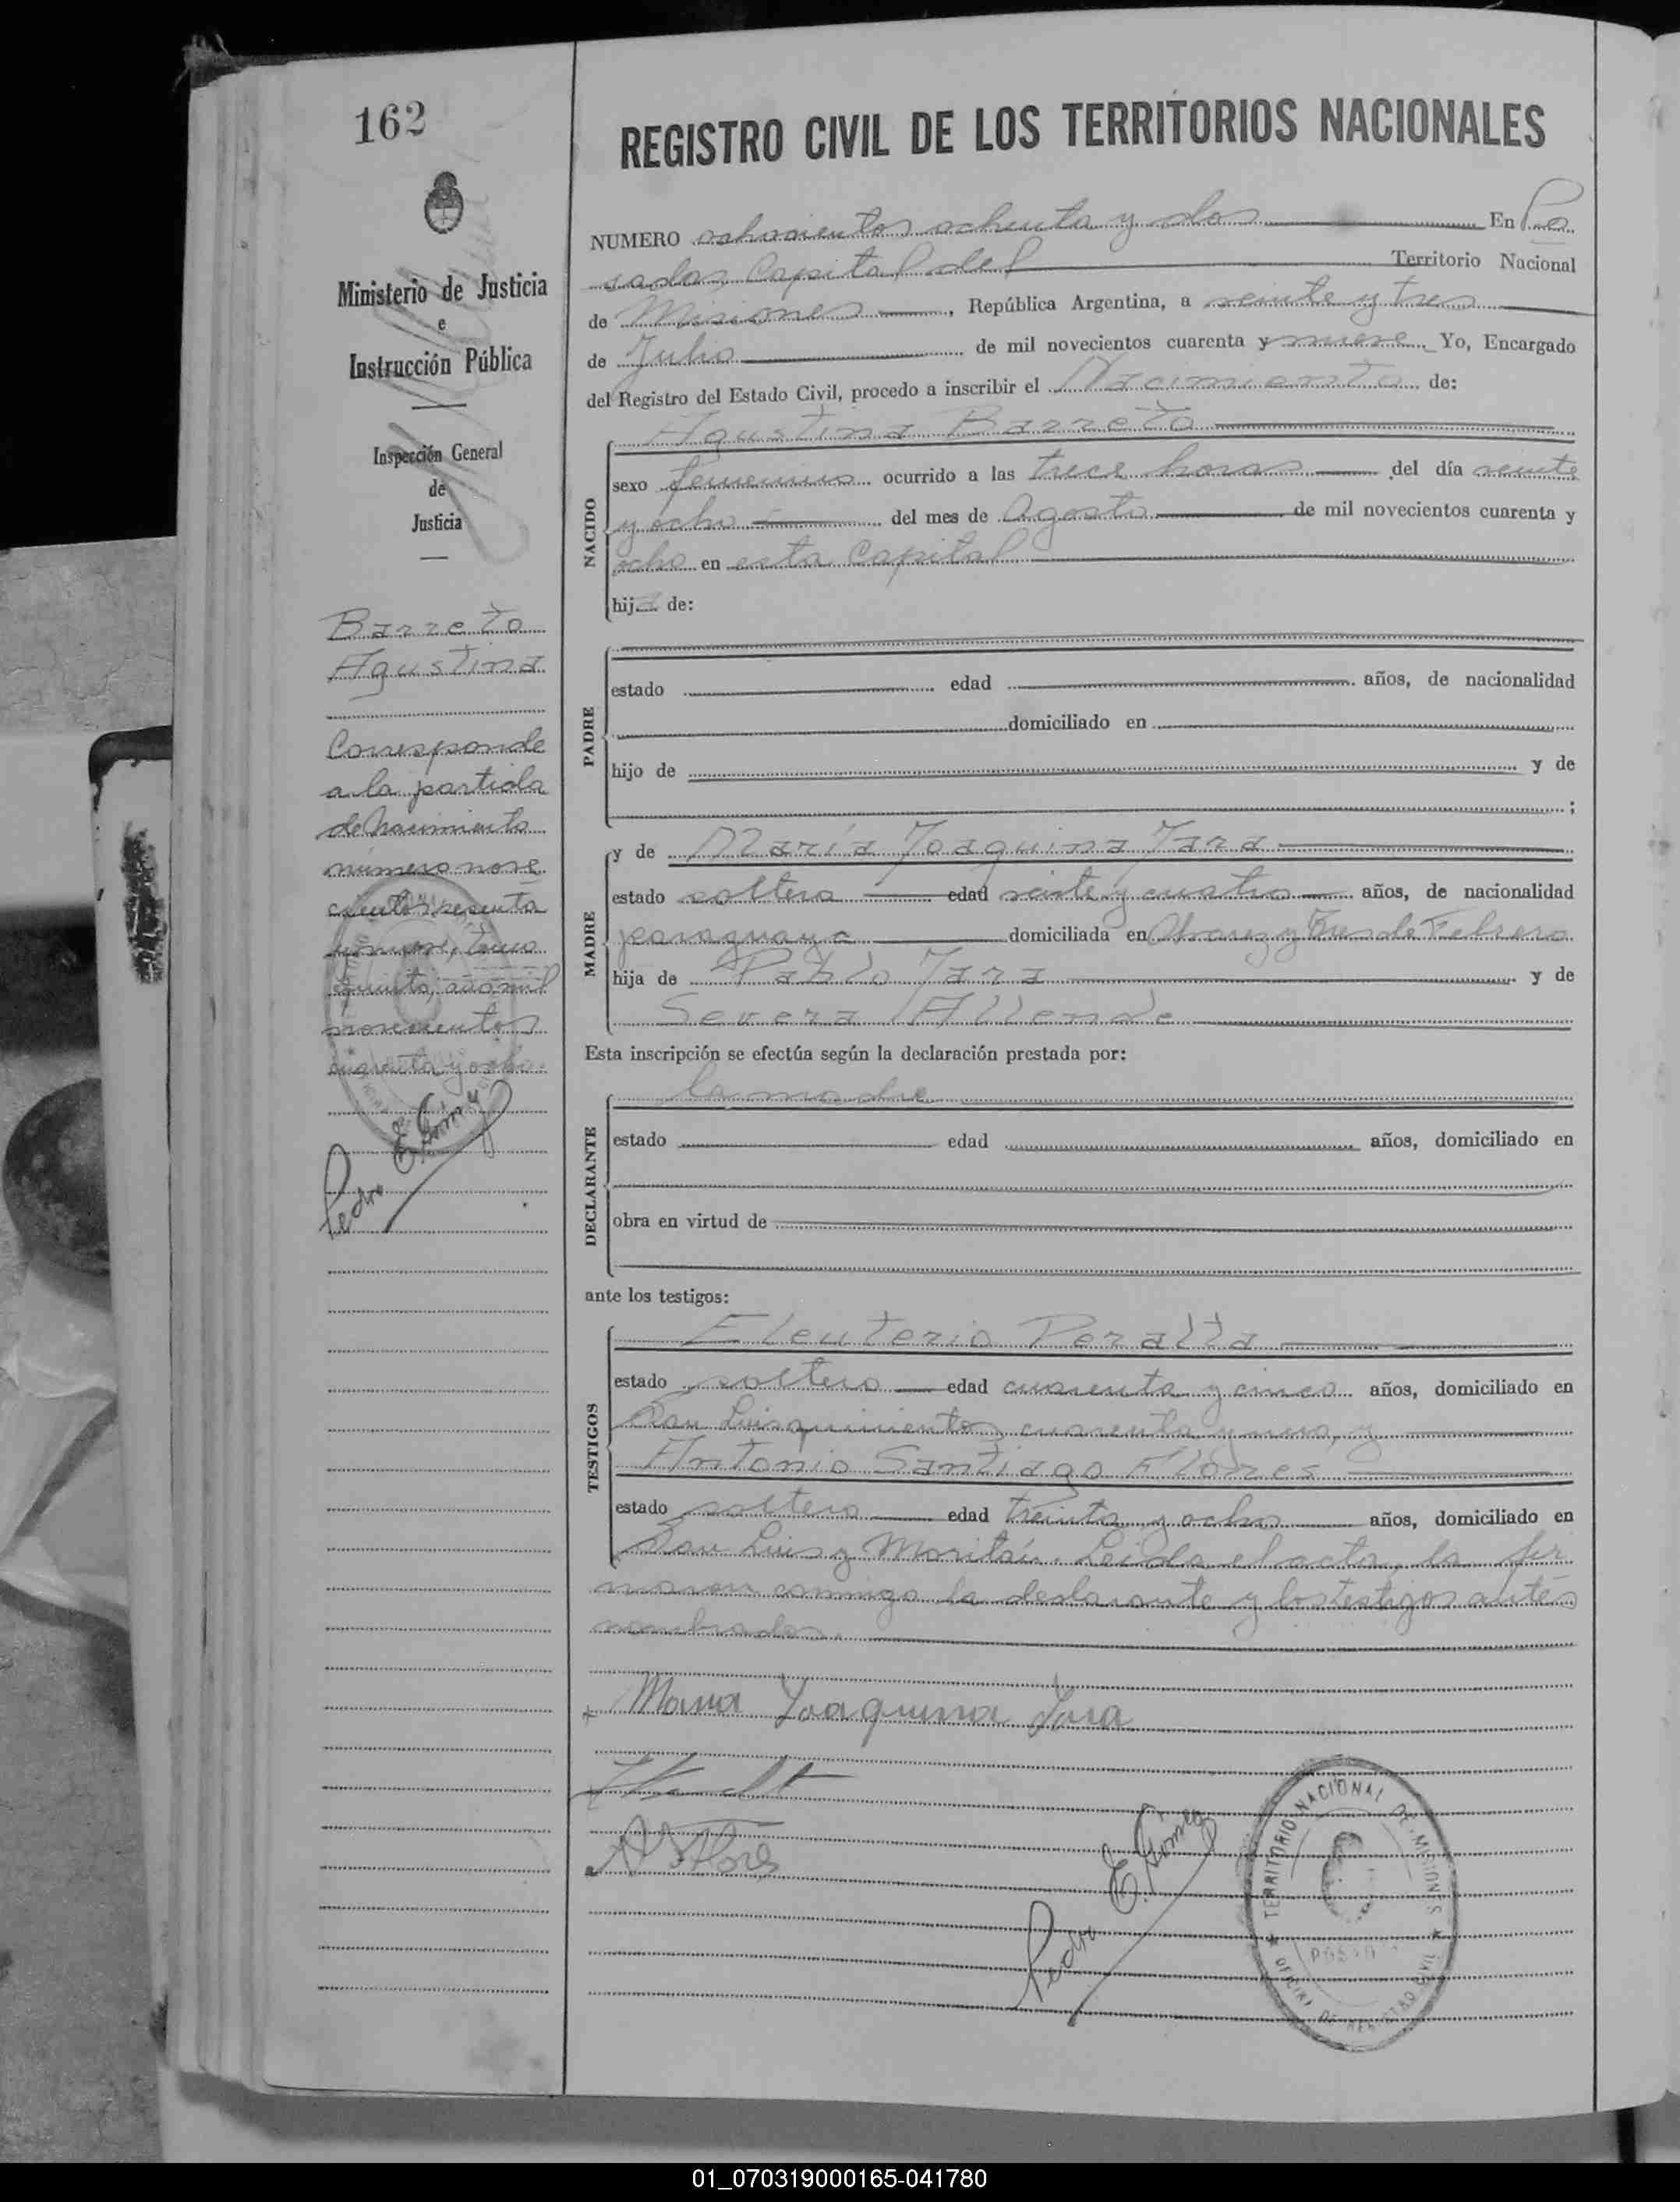 162
Ministerio de Justicia
e
Instrucción Pública
Inspección General
de
Justicia
Barreto
Agustina
Corresponde
a la partida
de Nacimiento
número nove
cientos
tomo
año mil
novecientos
cuarenta y ocho.
Pedro E. Gómez
REGISTRO CIVIL DE LOS TERRITORIOS NACIONALES
NUMERO ochocientos ochenta y dos En Po
sadas, Capital del Territorio Nacional
de Misiones, República Argentina, a veinte y tres
de Julio de mil novecientos cuarenta y nueve Yo, Encargado
del Registro del Estado Civil, procedo a inscribir el Nacimiento de:
Agustina Barreto
NACIDO
sexo femenino ocurrido a las trece horas del día veinte
y ocho del mes de Agosto de mil novecientos cuarenta y
ocho en esta Capital
hija de:
PADRE
estado edad años, de nacionalidad
domiciliado en
hijo de y de
;
MADRE
y de María Joaquina Jara
estado soltera edad veinte y cuatro años, de nacionalidad
paraguaya domiciliada en y Tres de Febrero
hija de Pablo Jara y de
Severa Allende
Esta inscripción se efectúa según la declaración prestada por:
DECLARANTE
la madre
estado edad años, domiciliado en
obra en virtud de
ante los testigos:
TESTIGOS
Eleuterio Peralta
estado soltero edad cuarenta y cinco años, domiciliado en
San Luis quinientos cuarenta y uno, y
Antonio Santiago Flores
estado soltero edad treinta y ocho años, domiciliado en
San Luis y Moritán. Leida el acta, la fir
maron conmigo la declarante y los testigos antes
nombrados.
Maria Joaquina Jara
A S Flores
Pedro E. Gómez
TERRITORIO NACIONAL DE MISIONES
POSADAS
OFICINA DE REGISTRO CIVIL
01_070319000165-041780